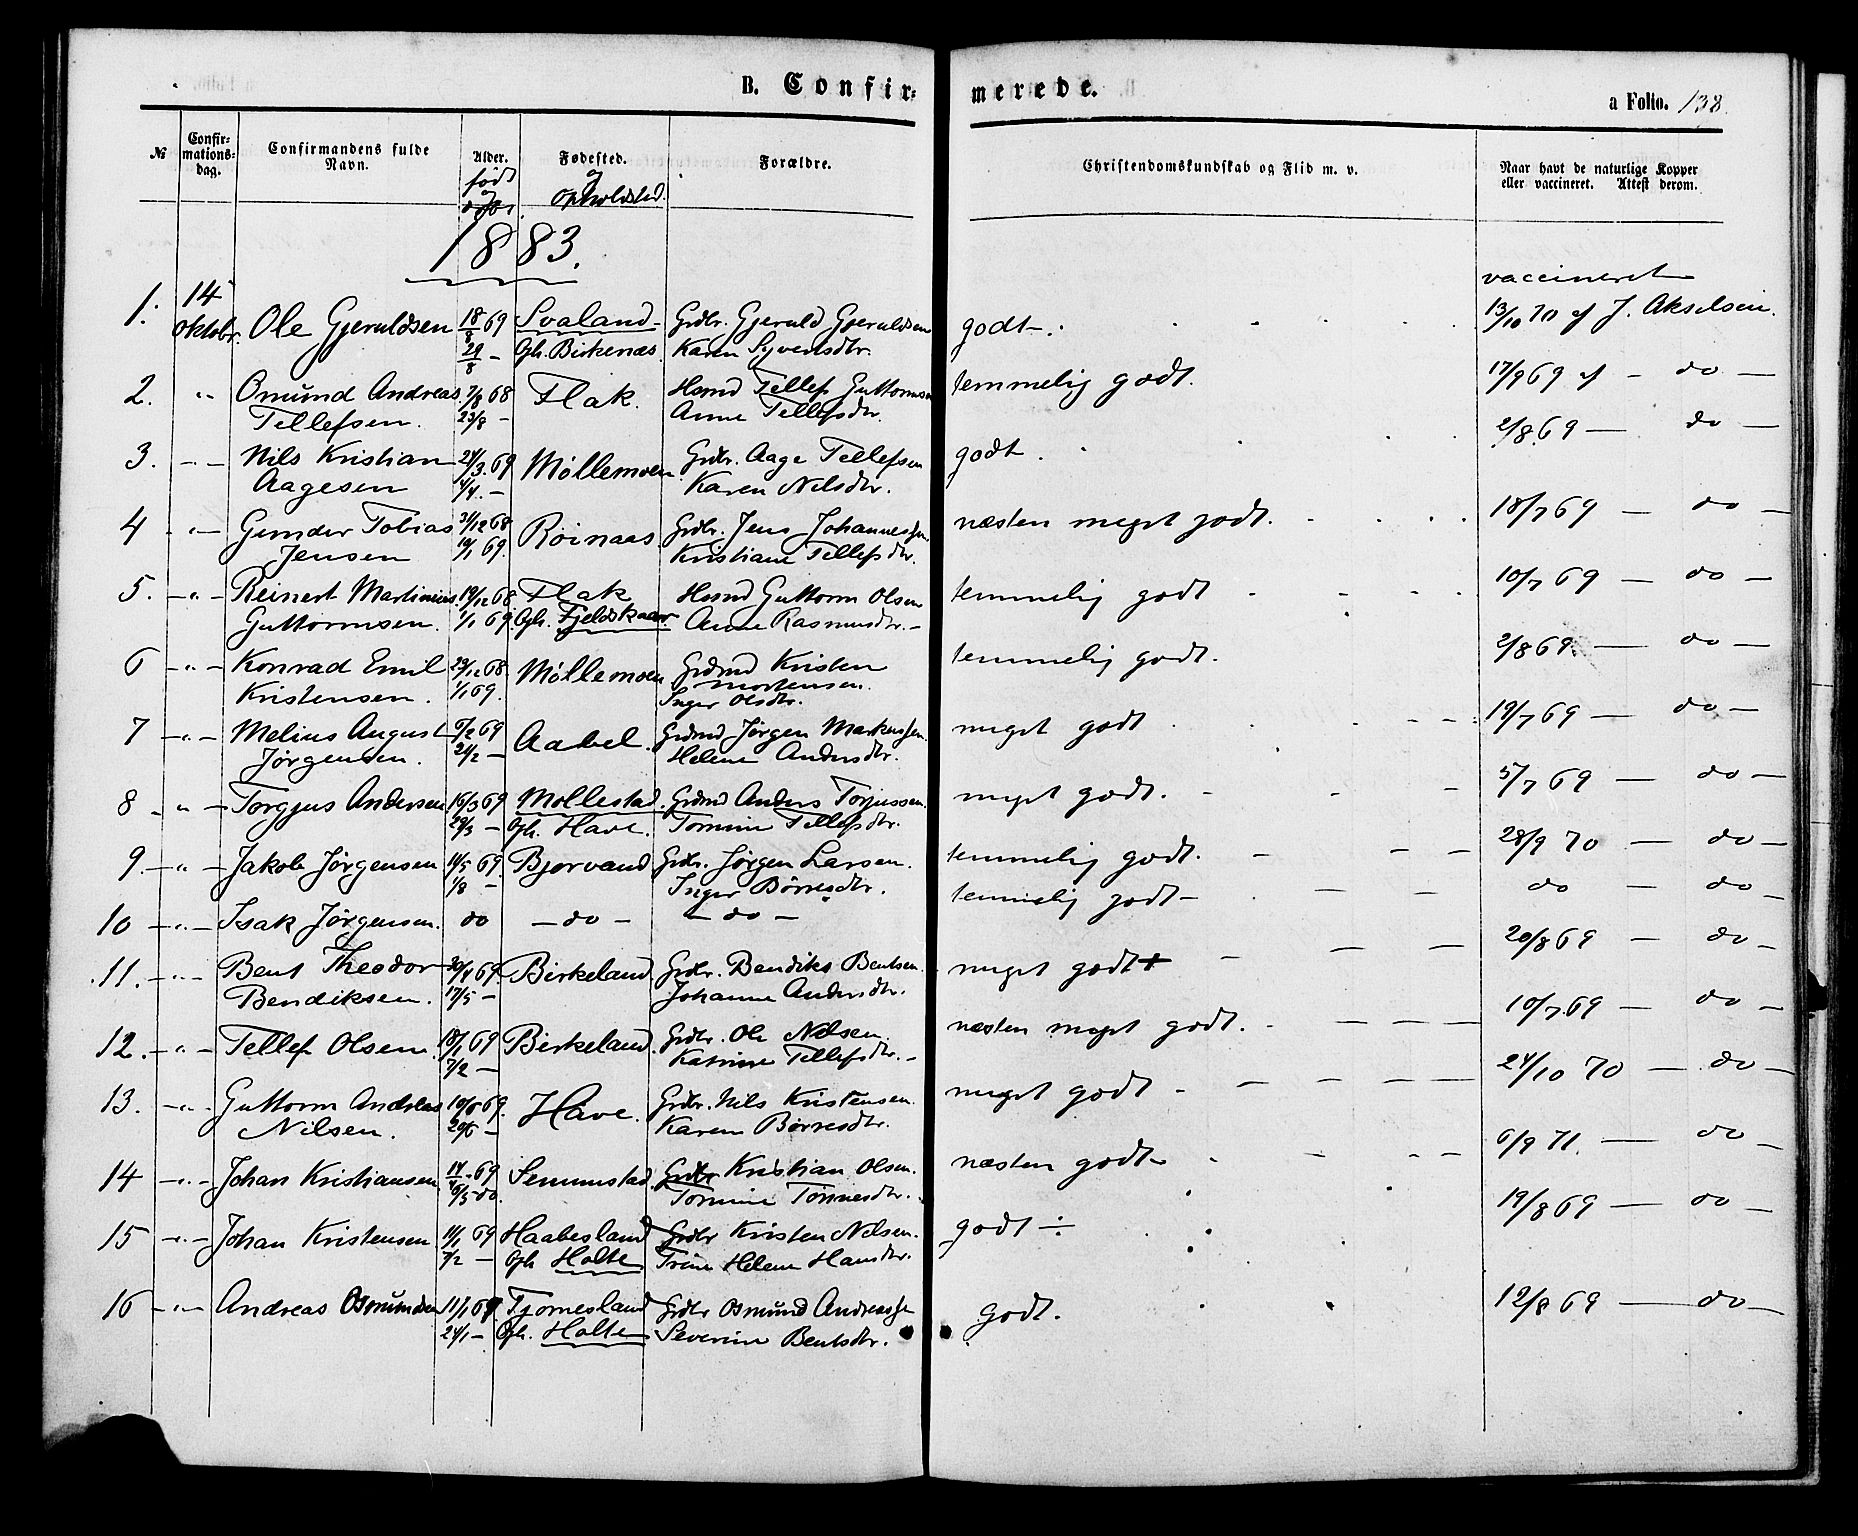 B. Confir- merede.
a Folio. 138.
№ Confir-mations-dag. Confirmandens fulde Navn. Alder. Fødested. Forældre. Christendomskundskab og Flid m. v. Naar havt de naturlige Kopper eller vaccineret. Attest derom.
født og og Opholdsted.
1883.
vaccineret
1. 14 oktobr. Ole Gjeruldsen 18/8 69 Svaland Grdbr. Gjeruld Gjeruldsen godt 13/10 70 af J. Akselsen.
29/8 — Oph. Birkenæs Karen Syvertsdtr.
2. " Omund Andreas 7/8 68 Flak. Hsmd Tellef Guttormsen temmelig godt. 17/9 69 af — do —
Tellefsen. 23/8 — Anne Tellefsdtr.
3. " Nils Kristian 21/3 69 Møllemoen Grdbr. Aage Tellefsen godt. 2/8 69 — do —
Aagesen 4/4 — Karen Nilsdtr.
4 " Gunder Tobias 31/12 68 Røinaas Grdbr. Jens Johannessen næsten meget godt. 18/7 69 — do —
Jensen 19/1 69. Kristiane Tellefsdtr.
5. " Reinert Martinius 19/12 68 Flak Hsmd Guttorm Olsen temmelig godt 10/7 69 — do —
Guttormsen. 1/1 69. Oph. Fjeldskaar Anne Rasmusdtr.
6 " Konrad Emil 23/12 68 Møllemoen Grdmd Kristen temmelig godt. 2/8 69. — do —
Kristensen. 1/1 69. Mortensen. Inger Olsdtr.
7 " Melius August 5/2 69 Aabel. Grdmd Jørgen Markussen. meget godt 19/7 69 — do —
Jørgensen. 21/2 — Helene Andersdtr.
8 " Torgjus Andersen 16/3 69 Mollestad. Grdmd Anders Torjussen. meget godt. 5/7 69 — do —
29/3 — Oph. Have. Tomine Tellefsdtr.
9. " Jakob Jørgensen 14/5 69 Bjorvand Grdbr. Jørgen Larsen. temmelig godt. 28/9 70 — do —
1/8 — Inger Børresdtr.
10 " Isak Jørgensen. do — do — — do — temmelig godt do — do —
11. " Bent Theodor 30/4 69 Birkeland Grdbr. Bendiks Bentsen. meget godt + 20/8 69 — do —
Bendiksen. 17/5 — Johanne Andersdtr.
12. " Tellef Olsen. 18/1 69 Birkeland Grdbr. Ole Nilsen næsten meget godt. 10/7 69 — do —
7/2 — Katrine Tellefsdtr.
13. " Guttorm Andreas 10/6 69. Have. Grdbr. Nils Kristensen. meget godt 24/10 70 — do —
Nilsen. 20/6 — Karen Børresdtr.
14 " Johan Kristiansen 69 Senumstad. Grdbr Kristian Olsen. næsten godt 6/9 71. — do —
6/5 do. Tomine Tønnesdtr.
15 " Johan Kristensen 11/1 69 Haabesland Grdbr Kristen Nilsen. godt ÷ 19/8 69 — do —
7/2 — Oph Holte Trine Helene Hansdtr.
16 " Andreas Osmundsen 11/1 69 Tjomesland Grdbr Osmund Andreassen godt. 12/8 69 — do —
24/1 — Oph. Holte Severine Bentsdtr.